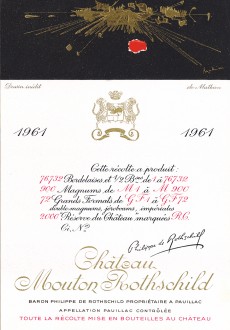 Dessin inédit de Mathieu
1961 1961
Cette récolte a produit:
76732 Bordelaises et 1/2 Bses de 1 à 76732
900 Magnums de M 1 à M 900
72 Grands Formats de G F 1 à G F 72
double magnums, jéroboams, impériales
2000 "Réserve du Château" marquées R.C.
Ci, No
Philippe de Rothschild
Château
Mouton Rothschild
BARON PHILIPPE DE ROTHSCHILD PROPRIÉTAIRE A PAUILLAC
APPELLATION PAUILLAC CONTRÔLÉE
TOUTE LA RÉCOLTE MISE EN BOUTEILLES AU CHÂTEAU